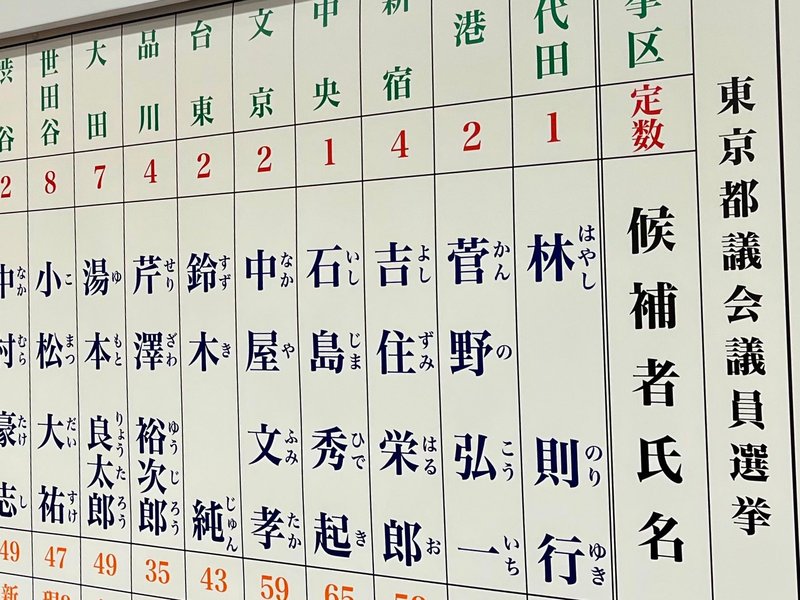 東京都議会議員選挙
挙区
定数
候補者氏名
代田
1
林則行
はやしのりゆき
港
2
菅野弘一
かんのこういち
新宿
4
吉住栄郎
よしずみはるお
中央
1
石島秀起
いしじまひでき
65
文京
2
中屋文孝
なかやふみたか
59
台東
2
鈴木純
すずきじゅん
43
品川
4
芹澤裕次郎
せりざわゆうじろう
35
大田
7
湯本良太郎
ゆもとりょうたろう
49
世田谷
8
小松大祐
こまつだいすけ
47
渋谷
2
中村豪志
なかむらたけし
49
新